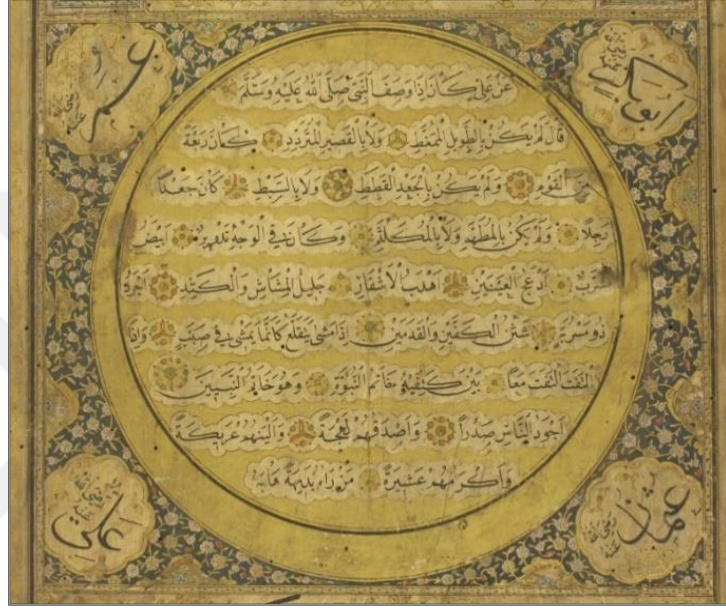 ابو بكر رضي الله عنه
عمر رضي الله عنه
عَنْ عَلِيٍّ كَانَ اِذَا وَصَفَ النَّبِيَّ صَلَّى اللهُ عَلَيْهِ وَسَلَّمَ
قَالَ لَمْ يَكُنْ بِالطَّوِيلِ الْمُمَّغِطِ وَلَا بِالْقَصِيرِ الْمُتَرَدِّدِ وَكَانَ رَبْعَةً
مِنَ الْقَوْمِ وَلَمْ يَكُنْ بِالْجَعْدِ الْقَطَطِ وَلَا بِالسَّبِطِ كَانَ جَعْدًا
رَجِلًا وَلَمْ يَكُنْ بِالْمُطَهَّمِ وَلَا بِالْمُكَلْثَمِ وَكَانَ فِي الْوَجْهِ تَدْوِيرٌ اَبْيَضُ
مُشْرَبٌ اَدْعَجُ الْعَيْنَيْنِ اَهْدَبُ الْاَشْفَارِ جَلِيلُ الْمُشَاشِ وَالْكَتَدِ اَجْرَدُ
ذُو مَسْرُبَةٍ شَثْنُ الْكَفَّيْنِ وَالْقَدَمَيْنِ اِذَا مَشَى يَتَقَلَّعُ كَاَنَّمَا يَمْشِي فِي صَبَبٍ وَاِذَا
الْتَفَتَ الْتَفَتَ مَعًا بَيْنَ كَتِفَيْهِ خَاتَمُ النُّبُوَّةِ وَهُوَ خَاتَمُ النَّبِيِّينَ
اَجْوَدُ النَّاسِ صَدْرًا وَاَصْدَقُهُمْ لَهْجَةً وَاَلْيَنُهُمْ عَرِيكَةً
وَاَكْرَمُهُمْ عَشِيرَةً مَنْ رَاٰهُ بَدِيهَةً هَابَهُ
عثمان رضي الله عنه
علي رضي الله عنه